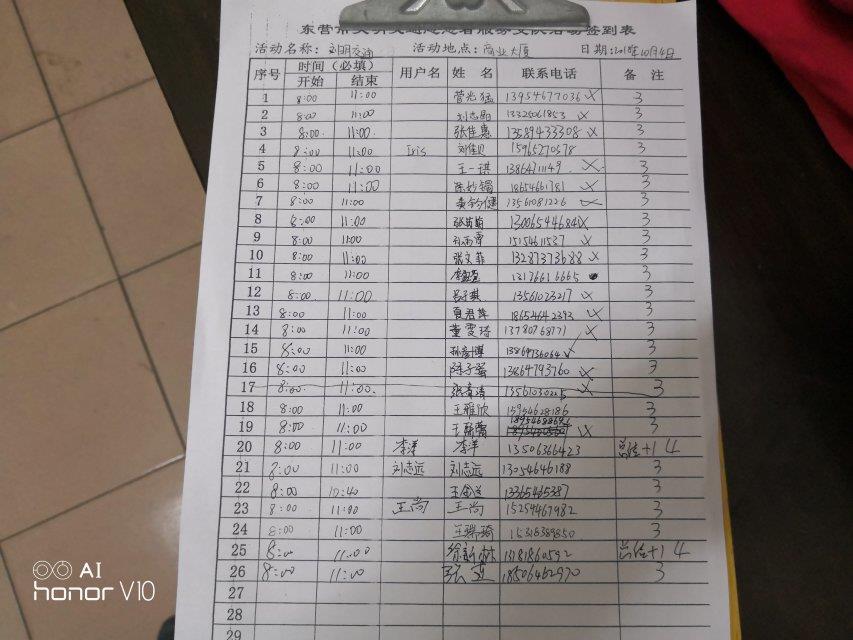 东营市文明交通志愿者服务支队活动签到表
活动名称：文明交通 活动地点：商业大厦 日期：2018年10月4日
序号 时间（必填） 用户名 姓 名 联系电话 备 注
开始 结束
1 8:00 11:00 13954677036 × 3
2 8:00 11:00 13325061853 × 3
3 8:00 11:00 13589433308 × 3
4 8:00 11:00 Iris 15965270578 3
5 8:00 11:00 王一琪 13864711149 × 3
6 8:00 11:00 18654661781 × 3
7 8:00 11:00 13561081226 × 3
8 8:00 11:00 3
9 8:00 11:00 15154611537 × 3
10 8:00 11:00 张文菲 13287373688 × 3
11 8:00 11:00 13176616665 3
12 8:00 11:00 吕子琪 13561023217 × 3
13 8:00 11:00 夏君萍 18654642393 × 3
14 8:00 11:00 董雯琦 13780768771 × 3
15 8:00 11:00 3
16 8:00 11:00 13864793760 × 3
17 8:00 11:00 × 3
18 8:00 11:00 王雅欣 15954628186 3
19 8:00 11:00 × 3
20 8:00 11:00 李洋 李洋 13506366423 总结+1 4
21 8:00 11:00 刘志远 刘志远 13054646188 3
22 8:00 10:40 13365465387 3
23 8:00 11:00 王尚 王尚 15254467982 3
24 8:00 11:00 王瑞琦 15318389850 3
25 8:00 11:00 徐新林 13181860592 总结+1 4
26 8:00 11:00 张亚 18506462970 3
27
28
29
AI
honor V10